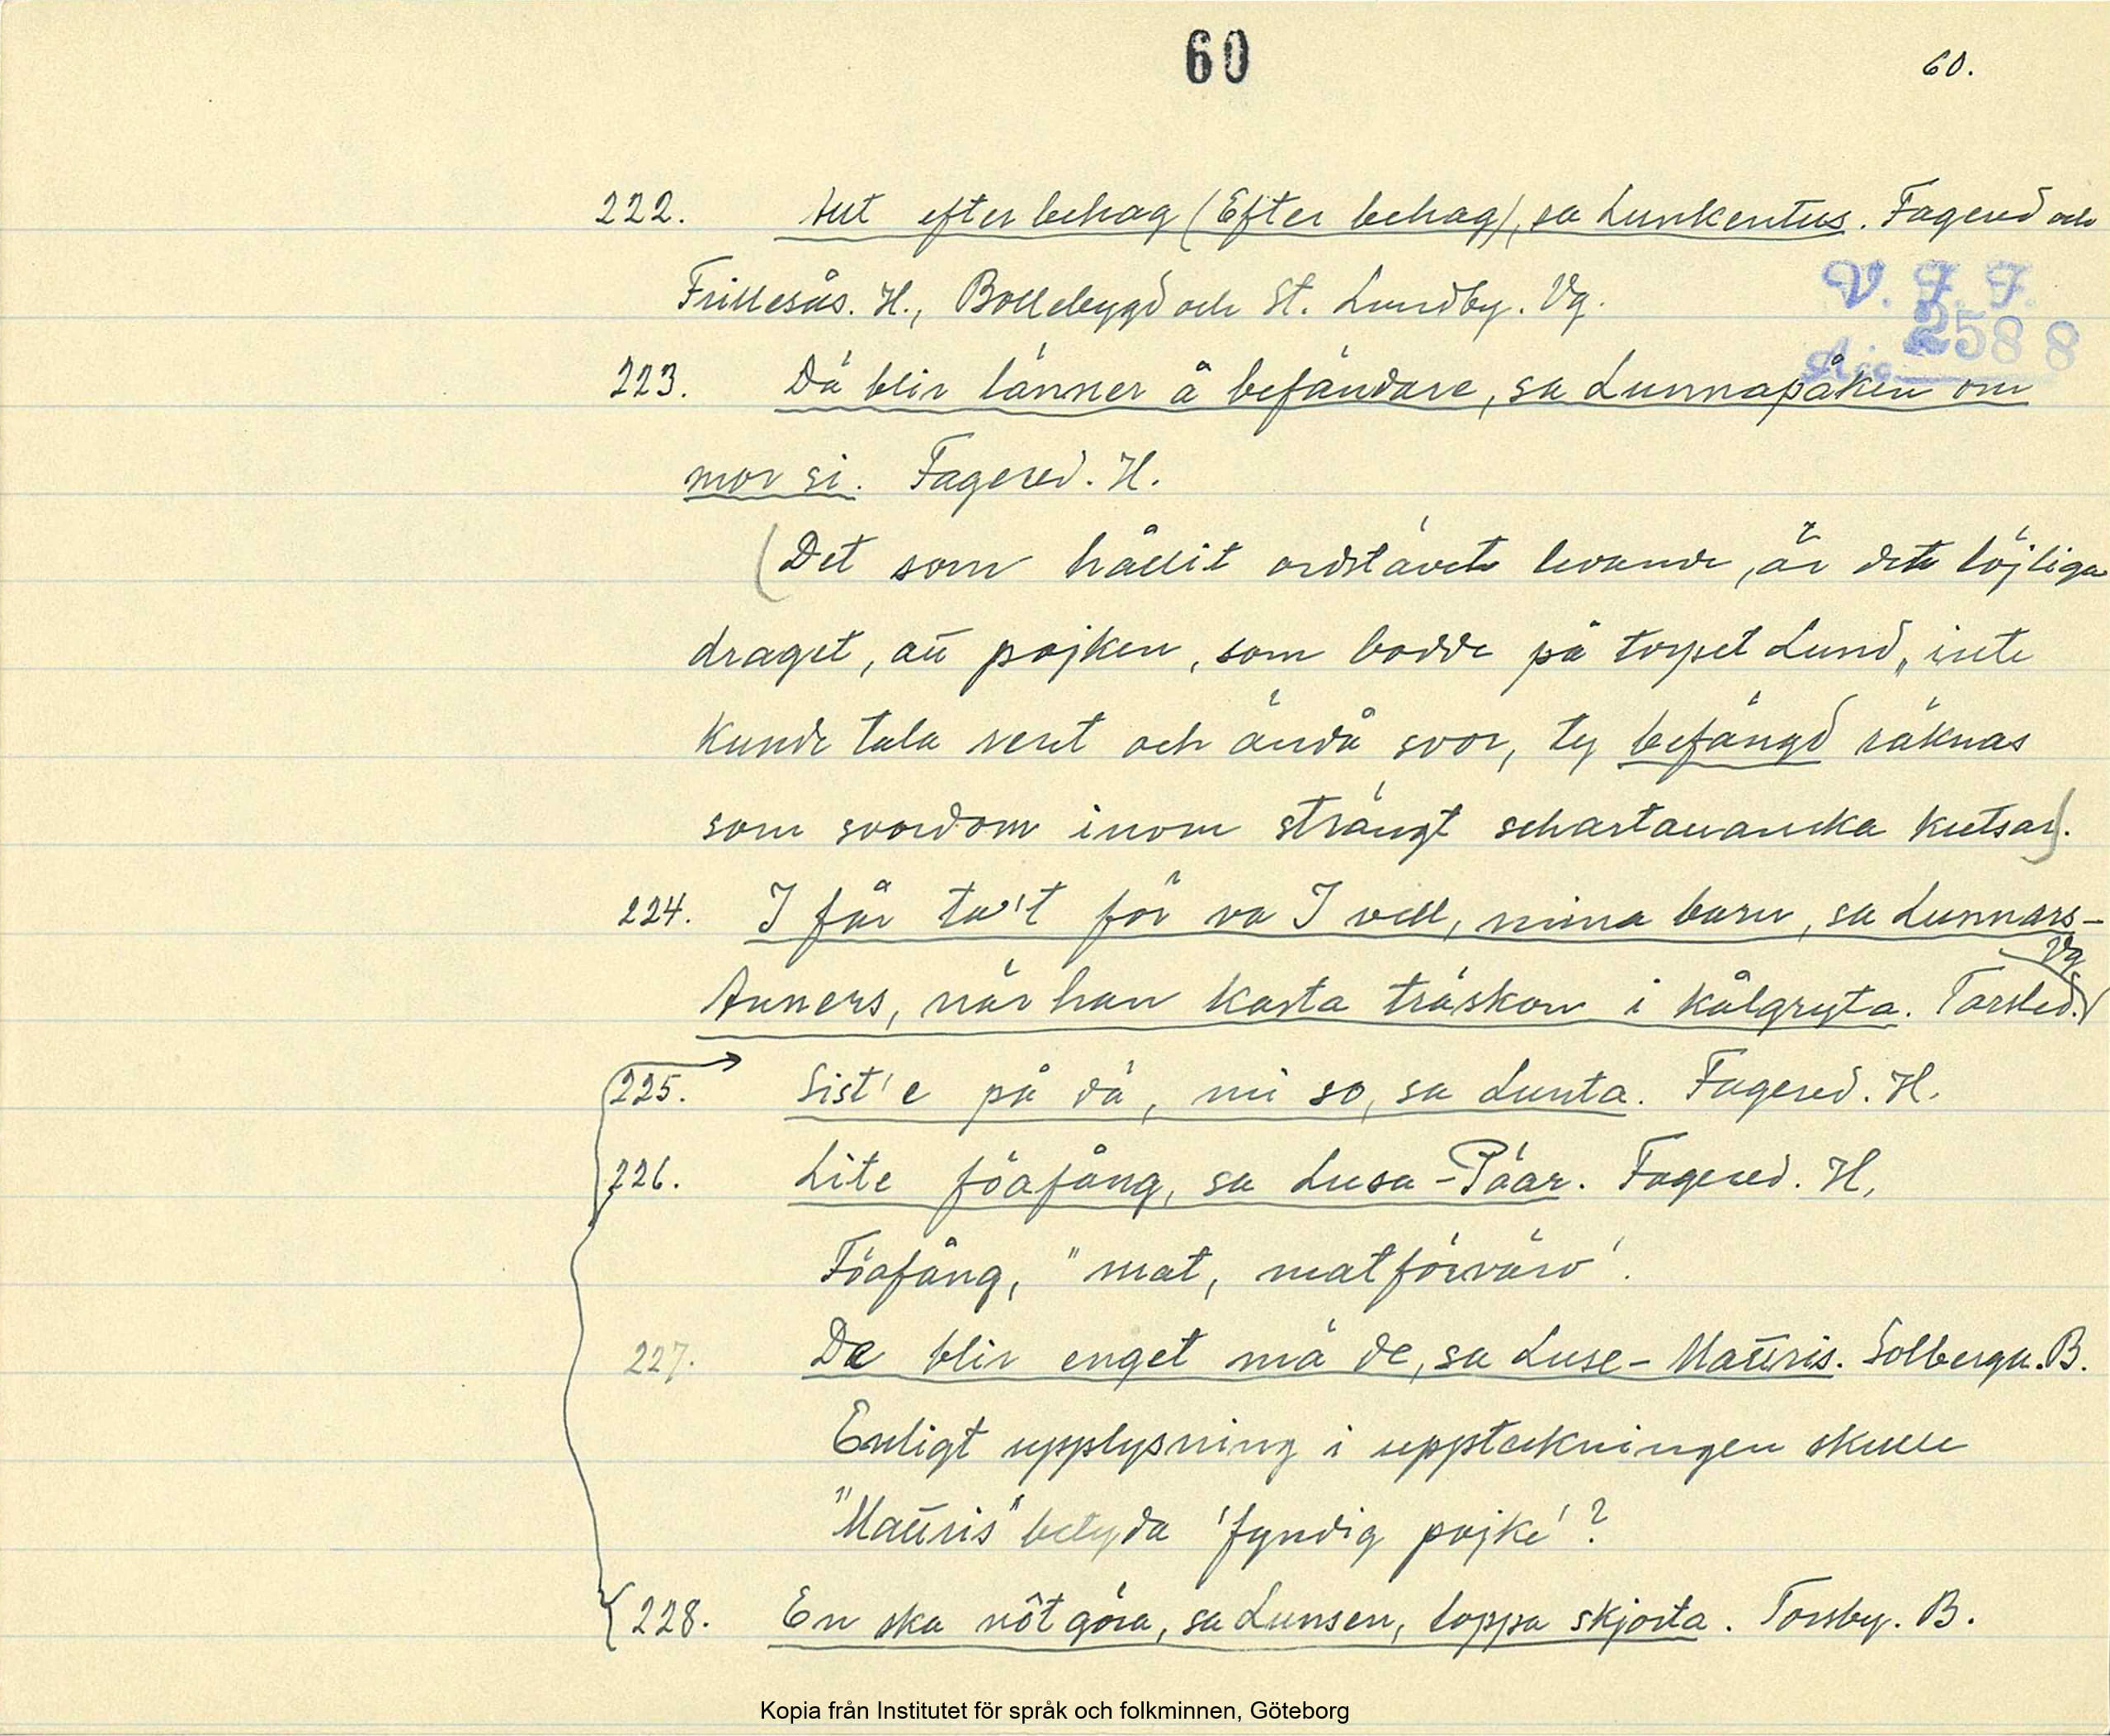 60
60.
222. Allt efter behag (Efter behag), sa Lunkentus. Fagered och
Frillesås. H., Bollebygd och St. Lundby. Vg.
V. F. F.
2588
Acc
223. Dä blir länner å befändare, sa Lunnapåken om
mor si. Fagered. H.
(Det som hållit ordstävet levande, är det löjliga
draget, att pojken, som bodde på torpet Lund, inte
kunde tala rent och ändå svor, ty befängd räknas
som svordom inom strängt schartauanska kretsar).
224. I får ta't för va I vell, mina barn, sa Lunnars-
Anners, när han kasta träskon i kålgryta. Torsled. Vg
225. Sist'e på dä, mi so, sa Lunta. Fagered. H.
226. Lite föafång, sa Lusa-Päar. Fagered. H.
Föafång, "mat, matförvärv'.
227. De blir enget mä de, sa Luse-Mauris. Solberga. B.
Enligt upplysning i uppteckningen skulle
"Mauris" betyda 'fyndig pojke'?
228. En ska nöt göra, sa Lunsen, loppa skjorta. Torsby. B.
Kopia från Institutet för språk och folkminnen, Göteborg